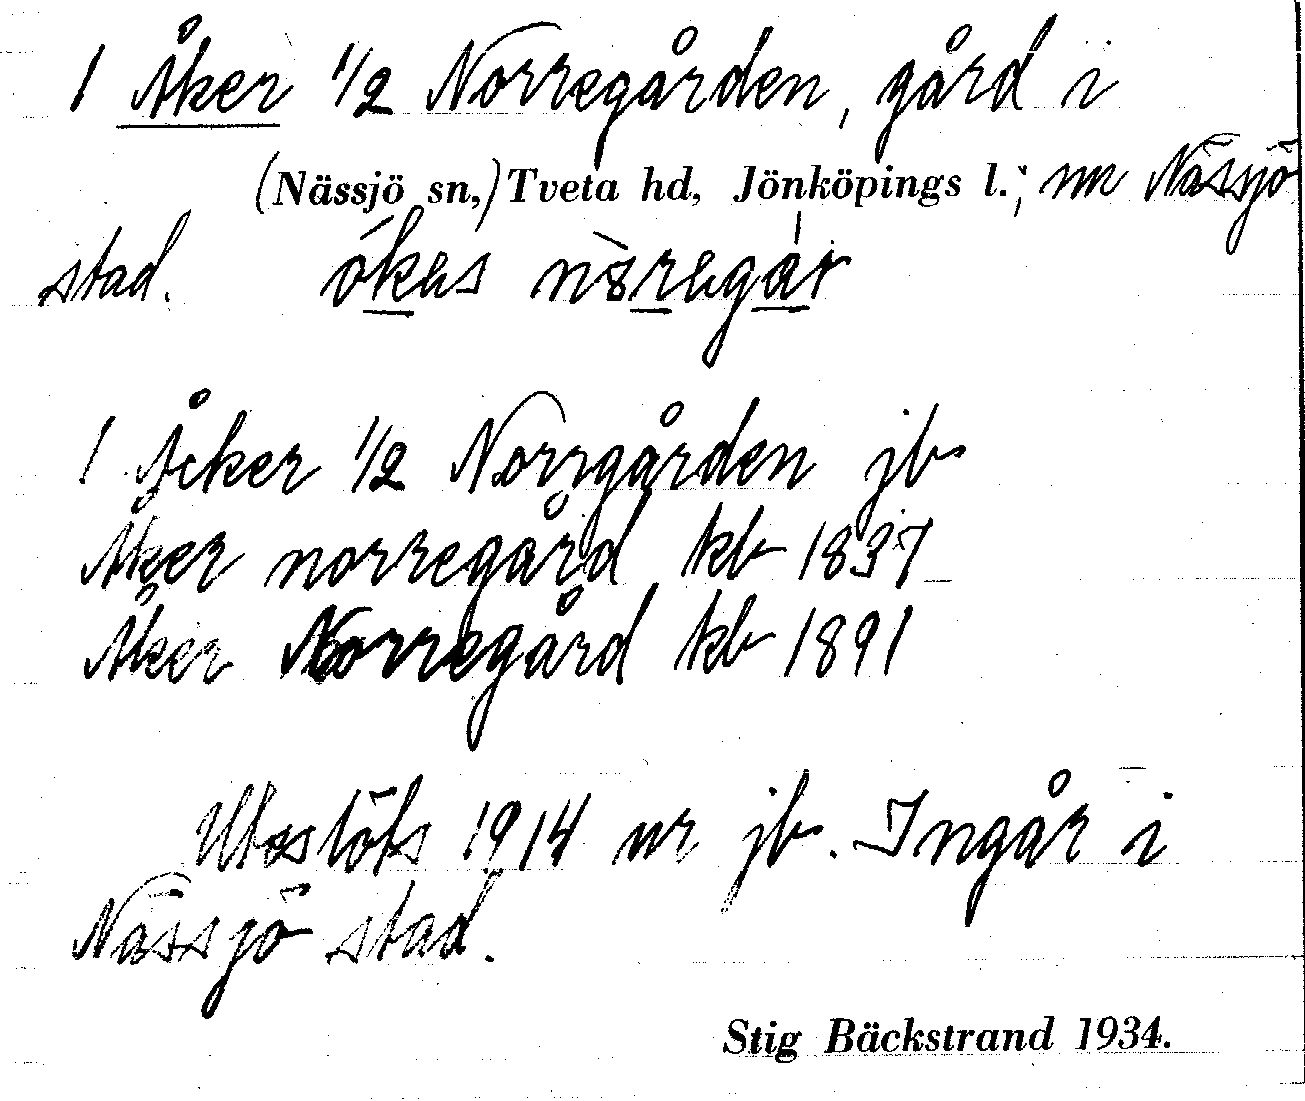 1 Åker 1/2 Norregården, gård i
(Nässjö sn,) Tveta hd, Jönköpings l.; nu Nässjö
stad.
1 Åcker 1/2 Norrgården jb
Åker norregård kb 1837
Åker Norregård kb 1891
Utstöts 1914 ur jb. Ingår i
Nässjö stad.
Stig Bäckstrand 1934.